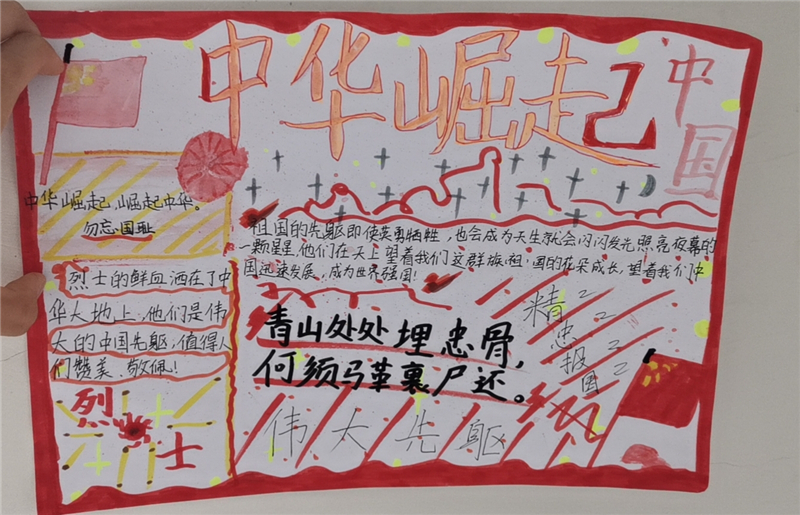 中华崛起
中国
中华崛起,崛起中华。
勿忘国耻
祖国的先躯即使英勇牺牲,也会成为天生就会闪闪发光照亮夜幕的
一颗星星,他们在天上望着我们这群族祖国的花朵成长,望着我们中
国迅速发展,成为世界强国!
烈士的鲜血洒在了中
华大地上,他们是伟
大的中国先躯,值得人
们赞美、敬佩!
青山处处埋忠骨,
何须马革裹尸还。
精忠报国
烈士
伟大先躯